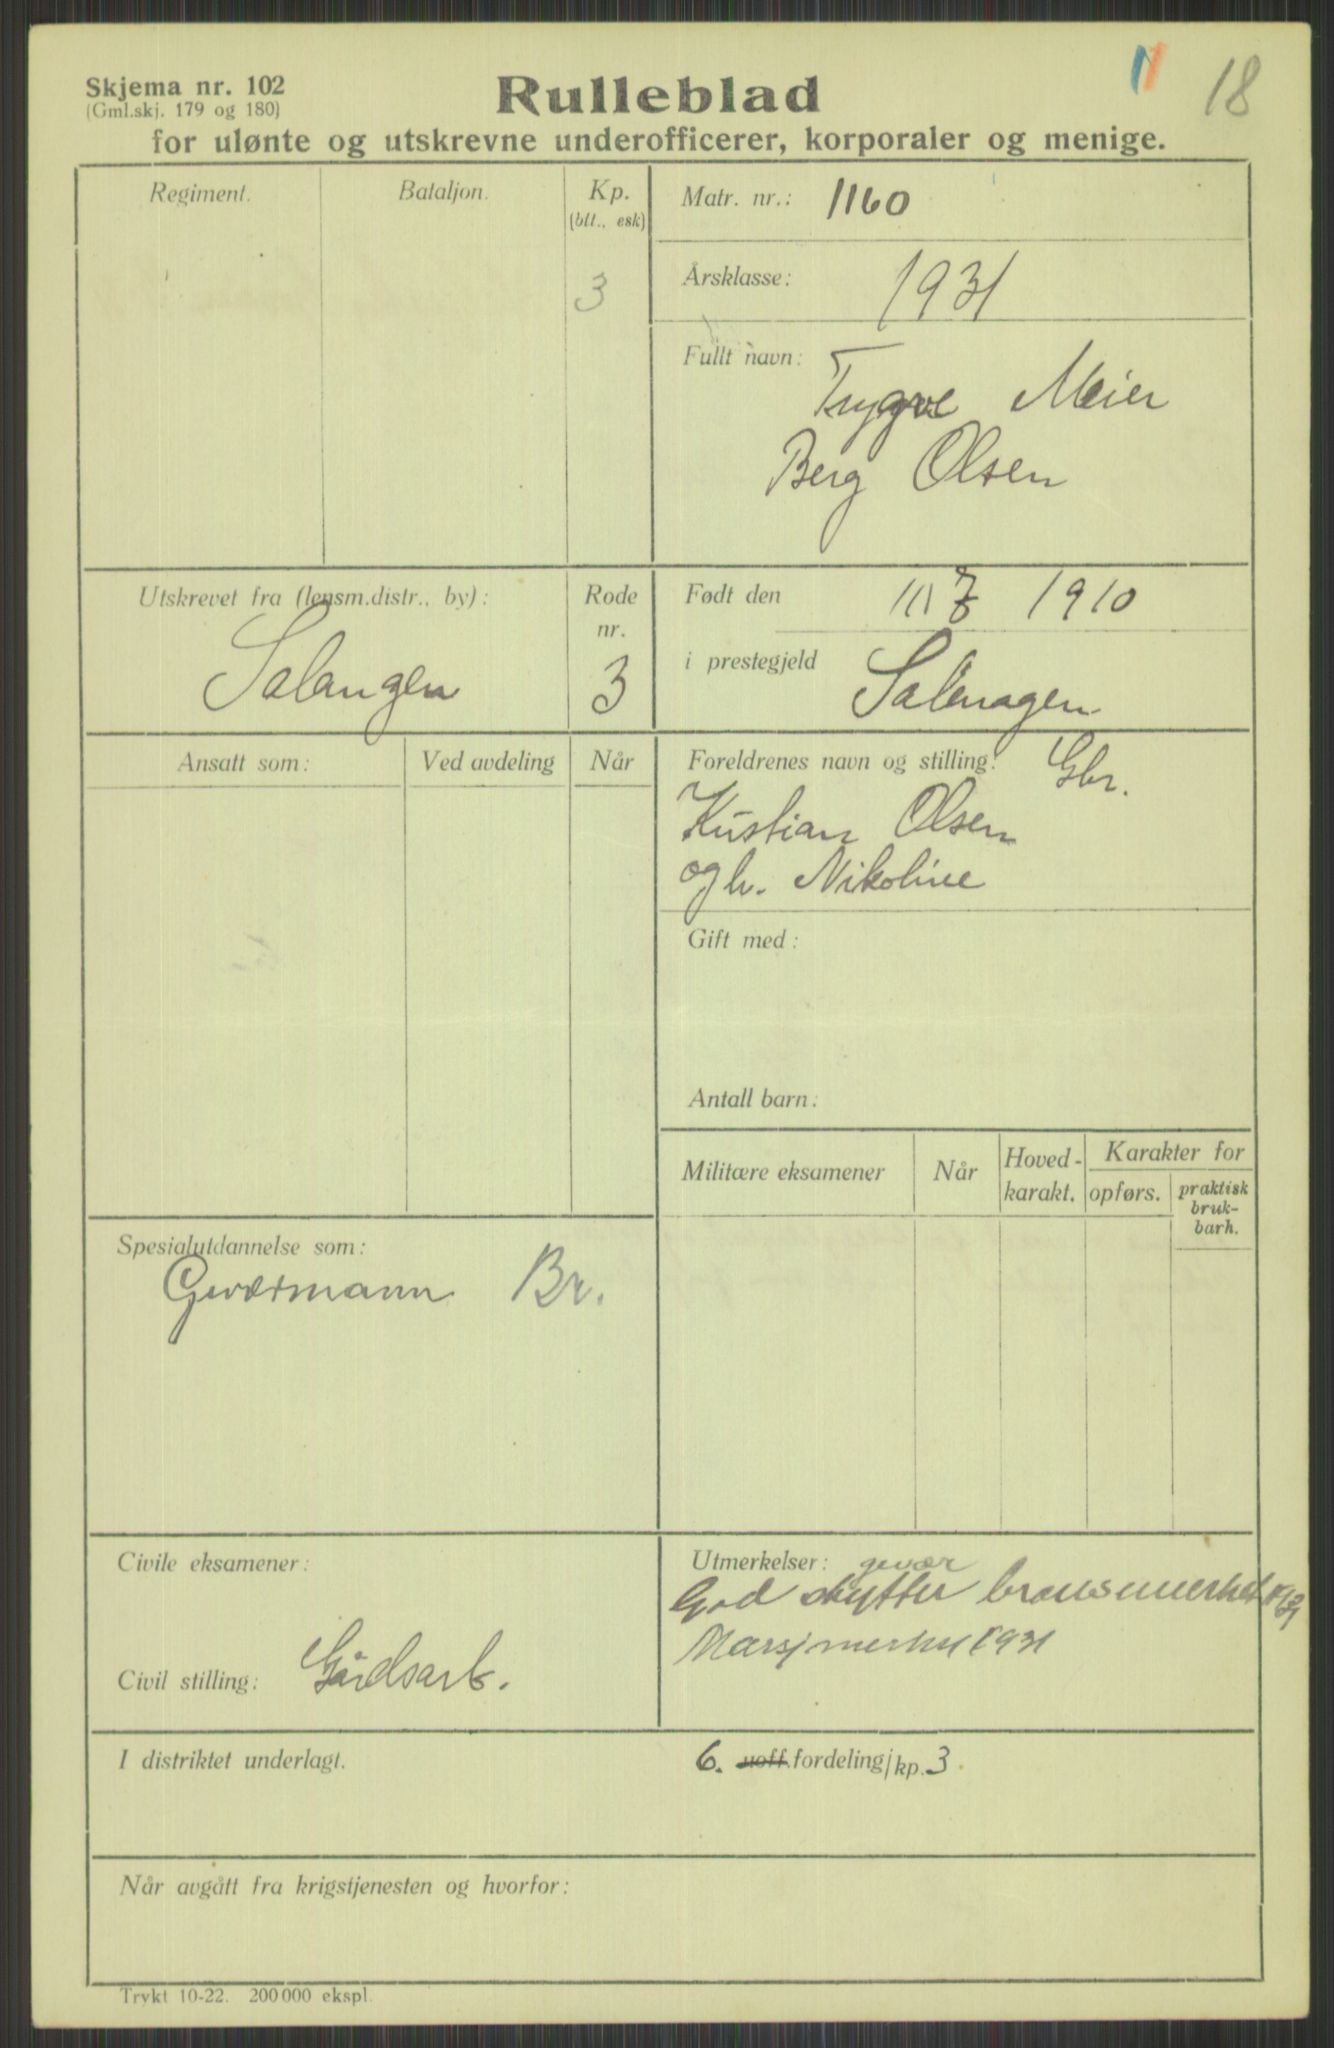 18
Skjema nr. 102
(Gml.skj. 179 og 180)
Rulleblad
for ulønte og utskrevne underofficerer, korporaler og menige.
Regiment.
Bataljon.
Kp.
(btt., esk)
3
Matr. nr.: 1160
Årsklasse: 1931
Fullt navn: Trygve Meier
Berg Olsen
Utskrevet fra (lensm.distr., by):
Salangen
Rode
nr.
3
Født den 1910
i prestegjeld Salangen
Ansatt som:
Ved avdeling
Når
Foreldrenes navn og stilling: Gbr.
Kristian Olsen
og h. Nikoline
Gift med:
Antall barn:
Militære eksamener
Når
Hoved-
karakt.
Karakter for
opførs.
praktisk
bruk-
barh.
Spesialutdannelse som:
Geværmann Br.
Civile eksamener:
Civil stilling: Gårdsarb.
Utmerkelser: gevær
God skytter bronsemerket
Marsjmerket 1931
I distriktet underlagt.
6. uoff.fordeling/kp. 3.
Når avgått fra krigstjenesten og hvorfor:
Trykt 10-22. 200 000 ekspl.